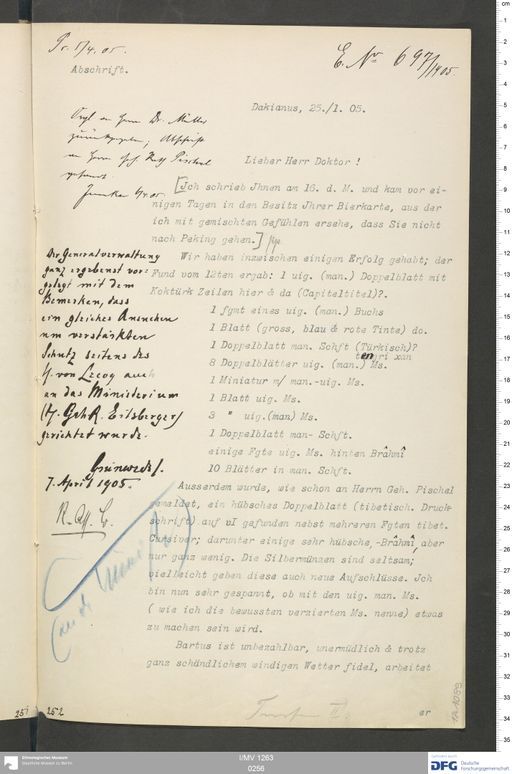 Pr. 5/4. 05.
E. No 697/1905
Abschrift.
Dakianus, 25./1. 05.
Lieber Herr Doktor !
[Jch schrieb Jhnen am 16. d. M. und kam vor ei-
nigen Tagen in den Besitz Jhrer Bierkarte, aus der
ich mit gemischten Gefühlen ersehe, dass Sie nicht
nach Peking gehen.]
Wir haben inzwischen einigen Erfolg gehabt; der
Fund vom 18ten ergab: 1 uig. (man.) Doppelblatt mit
Koktürk Zeilen hier & da (Capiteltitel)?.
1 fgmt eines uig. (man.) Buchs
1 Blatt (gross, blau & rote Tinte) do.
1 Doppelblatt man. Schft (Türkisch)?
tenri xan
8 Doppelblätter uig. (man.) Ms.
1 Miniatur m/ man.-uig. Ms.
1 Blatt uig. Ms.
3 " uig.(man) Ms.
1 Doppelblatt man- Schft.
einige Fgte uig. Ms. hinten Brâhmî
10 Blätter in man. Schft.
Ausserdem wurde, wie schon an Herrn Geh. Pischel
gemeldet, ein hübsches Doppelblatt (tibetisch. Druck-
schrift) auf uI gefunden nebst mehreren Fgten tibet.
Cursive; darunter einige sehr hübsche, -Brâhmî, aber
nur ganz wenig. Die Silbermünzen sind seltsam;
vielleicht geben diese auch neue Aufschlüsse. Jch
bin nun sehr gespannt, ob mit den uig. man. Ms.
( wie ich die bewussten verzierten Ms. nenne) etwas
zu machen sein wird.
Bartus ist unbezahlbar, unermüdlich & trotz
ganz schändlichem windigen Wetter fidel, arbeitet
er
Orgl an Herrn Dr. Müller
zurückgegeben; Abschrift
an Herrn Geh. Rath Pischel
gesandt.
Der Generalverwaltung
ganz ergebenst vor-
gelegt mit dem
Bemerken, dass
ein gleiches Ansuchen
um verstärkten
Schutz seitens des
H. von Lecoq auch
an das Ministerium
(H. Geh R. Eilsberger)
gerichtet wurde.
Grünwedel.
7. April 1905.
251
252
Ethnologisches Museum
Staatliche Museen zu Berlin
I/MV 1263
0256
DFG Deutsche
Forschungsgemeinschaft